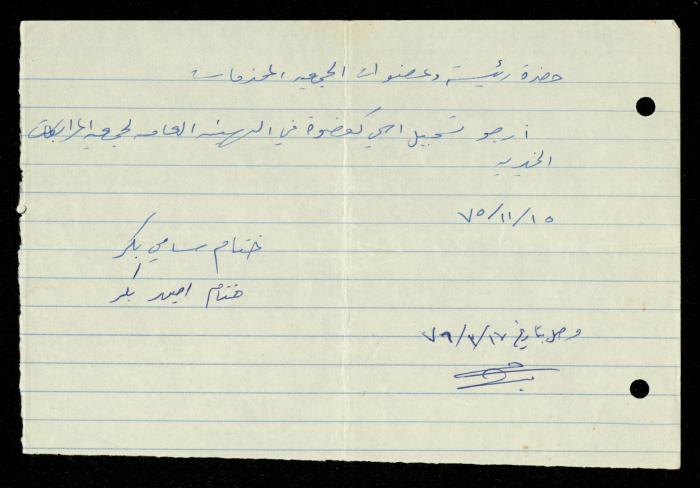 حضرة رئيسة وعضوات الجمعية المحترمات
أرجو تسجيل اسمي كعضوة في الهيئة العامة لجمعية المرابطات
الخيرية
٧٥/١١/١٥
ختام سامي بكر
ختام احمد بكر
وصل بتاريخ ١٧/٧/٧٩